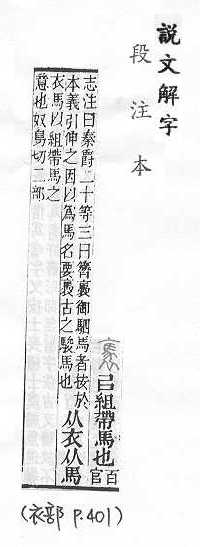 說文解字
段注本
褭 㠯組帶馬也百官
志注曰秦爵二十等三曰簪褭御駟馬者按於
本義引伸之因以爲馬名要褭古之駿馬也
从衣从馬
衣馬以組帶馬之
意也奴鳥切二部
(衣部 P.401)